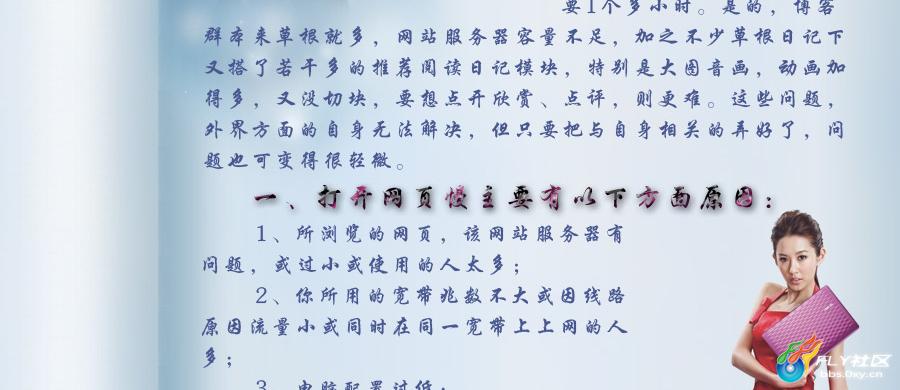 要1个多小时。是的，博客
群本来草根就多，网站服务器容量不足，加之不少草根日记下
又搭了若干多的推荐阅读日记模块，特别是大图音画，动画加
得多，又没切块，要想点开欣赏、点评，则更难。这些问题，
外界方面的自身无法解决，但只要把与自身相关的弄好了，问
题也可变得很轻微。
一、打开网页慢主要有以下方面原因：
1、所浏览的网页，该网站服务器有
问题，或过小或使用的人太多；
2、你所用的宽带兆数不大或因线路
原因流量小或同时在同一宽带上上网的人
多；
3、电脑配置过低；
FLY社区
bbs.0xy.cn